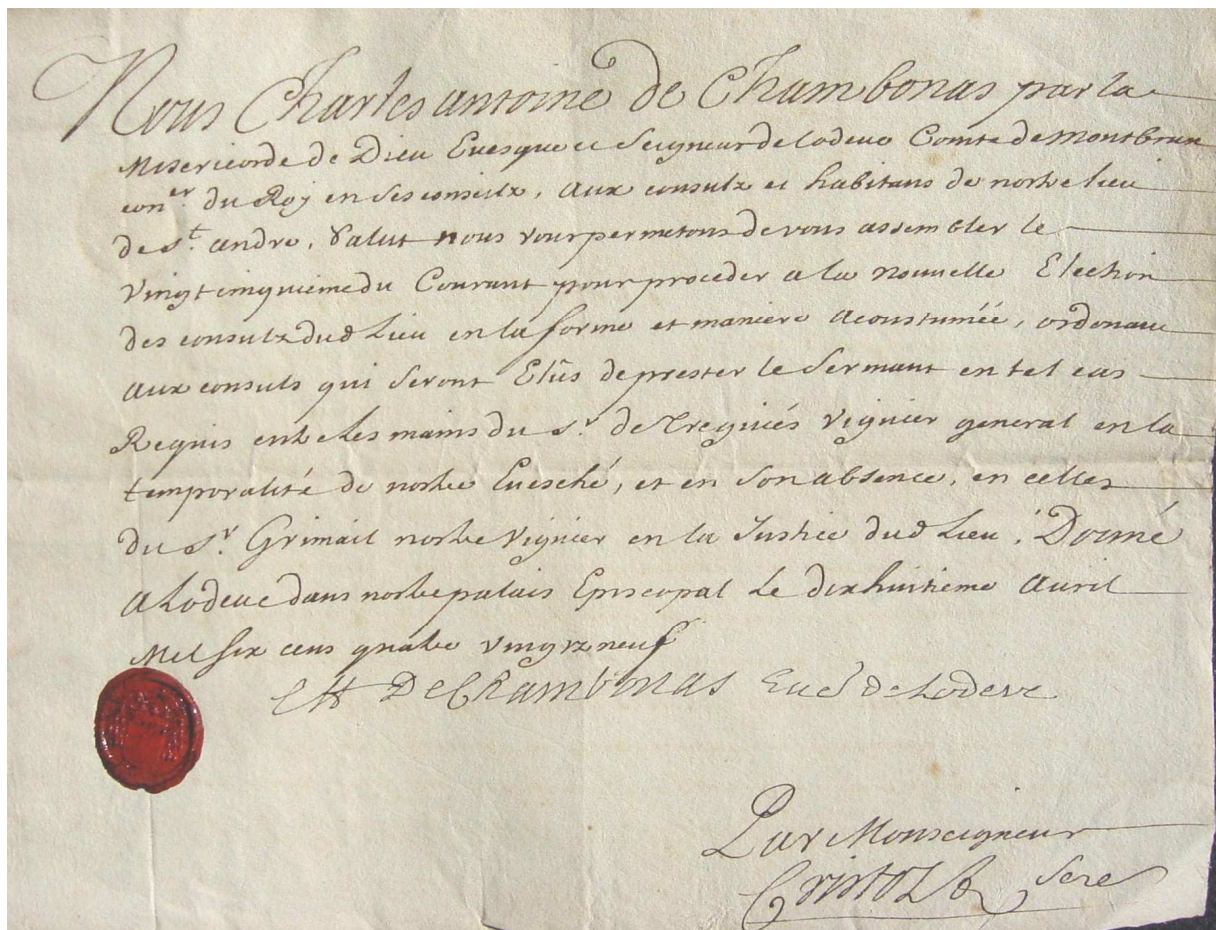 Nous Charles antoine de Chambonas par la
Misericorde de Dieu Evesque et Seigneur de Lodeve Comte de Montbrun
con.er du Roy en ses conseilx, aux consulx et habitans de nostre lieu
de S.t andre, Salut nous vous permetons de vous assembler le
vingt cinquiéme du Courant pour proceder a la nouvelle Election
des consulx dud Lieu en la forme et maniere acoustumée, ordonant
aux consuls qui seront Elûs de prester le sermant en tel cas
Requis entre les mains du S.r de viguier general en la
temporalité de nostre Evesché, et en son absence, en celles
du S.r Grimail nostre viguier en la Justice dud Lieu. Donné
a Lodeve dans nostre palais Episcopal Le dix huitiéme Auril
Mil six cens quatre vingtz neuf
CH De Chambonas Eué de Lodeve
Par Monseigneur